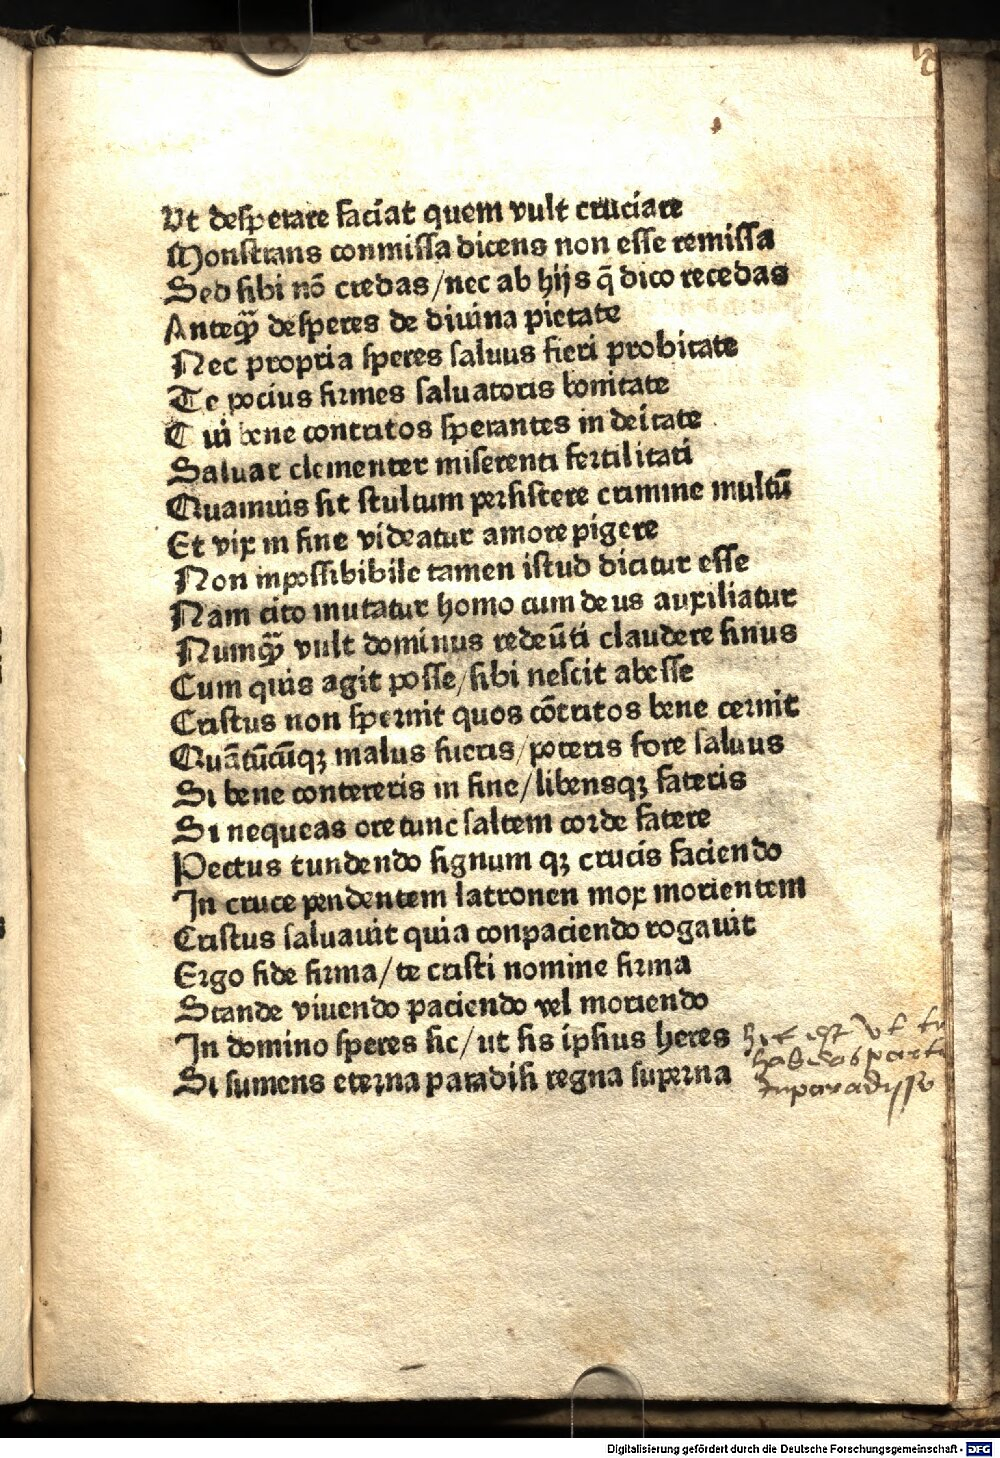 Ut desperare faciat quem vult cruciare
Monstrans conmissa dicens non esse remissa
Sed sibi nō credas/nec ab hijs q̄ dico recedas
Anteqꝫ desperes de diuina pietate
Nec propria speres saluus fieri probitate
Te pocius firmes saluatoris bonitate
Cui bene contritos sperantes in deitate
Saluat clementer miserenti fertilitati
Quamuis sit stultum persistere crimine multū
Et vix in fine videatur amore pigere
Non inpossibibile tamen istud dicitur esse
Nam cito mutatur homo cum deus auxiliatur
Numqꝫ vult dominus redeūti claudere sinus
Cum quis agit posse/sibi nescit abesse
Cristus non spernit quos cōtritos bene cernit
Quātūcūqꝫ malus fueris/poteris fore saluus
Si bene contereris in fine/libensqꝫ fateris
Si nequeas ore tunc saltem corde fatere
Pectus tundendo signum qꝫ crucis faciendo
In cruce pendentem latronen mox morientem
Cristus saluauit quia conpaciendo rogauit
Ergo fide firma/te cristi nomine firma
Stande viuendo paciendo vel moriendo
In domino speres sic/ut sis ipsius heres
Si sumens eterna paradisi regna superna
est vt
habeas
in paradysso
Digitalisierung gefördert durch die Deutsche Forschungsgemeinschaft - DFG